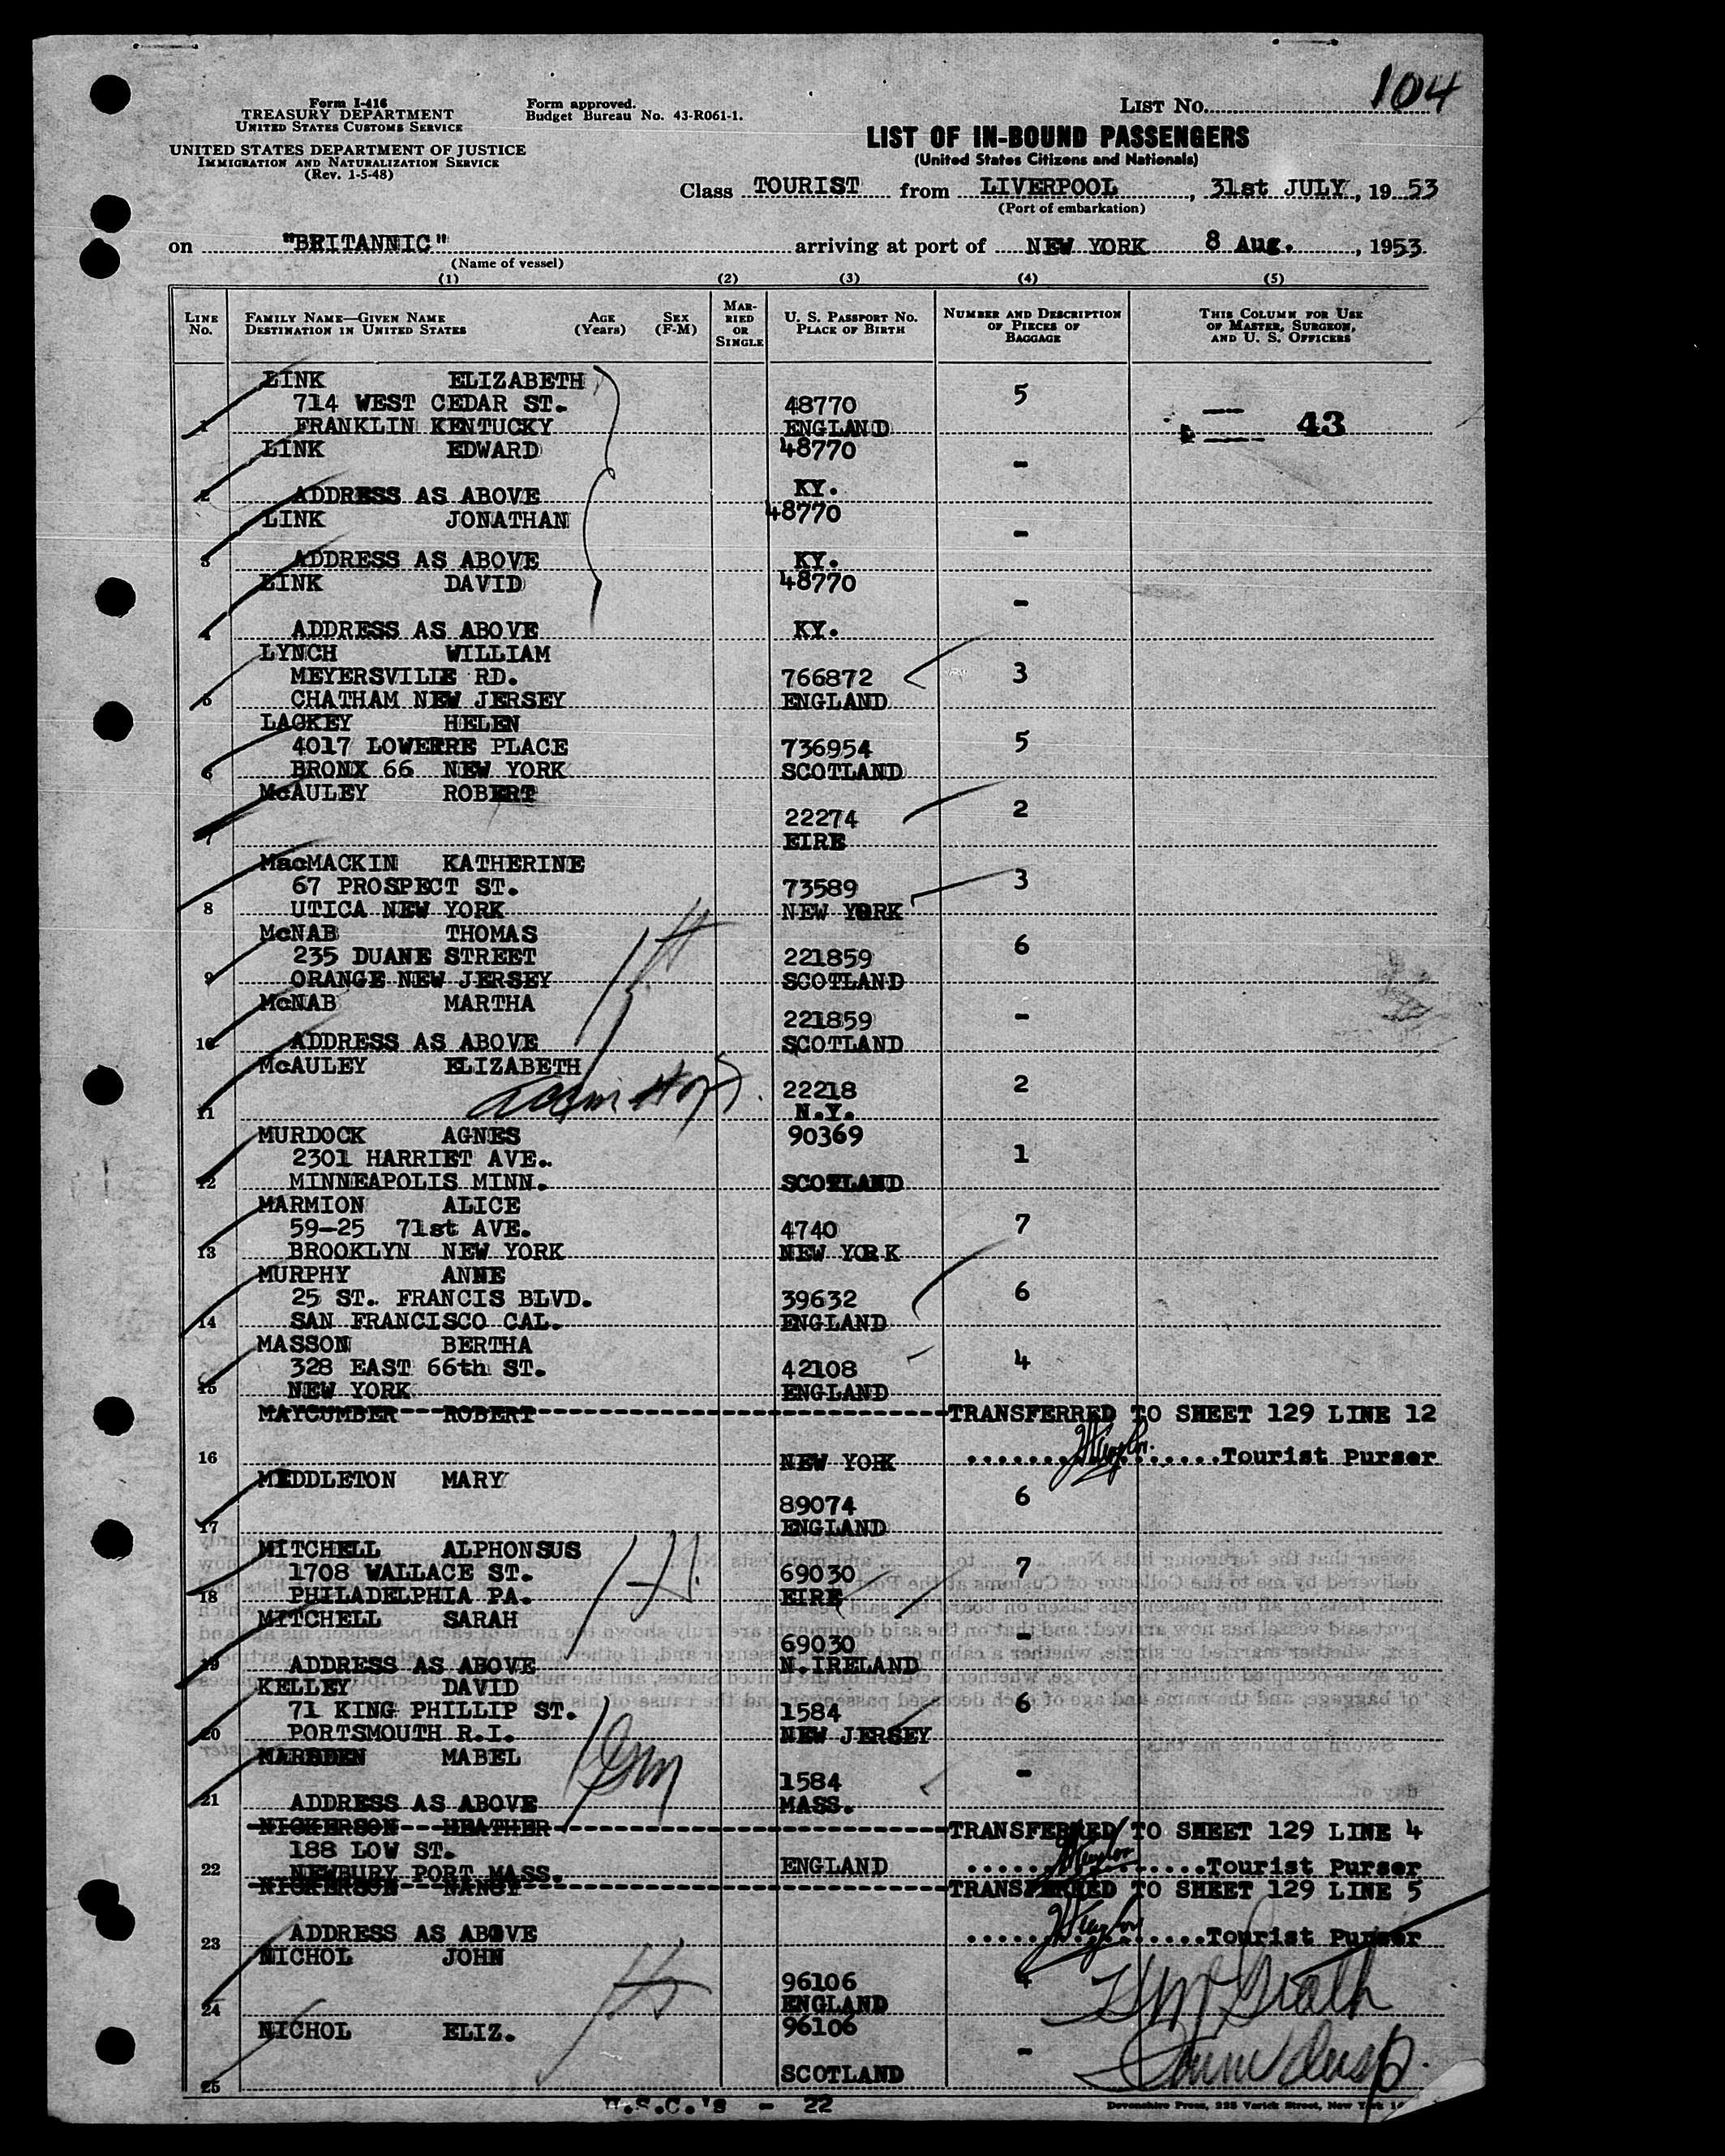 104
Form I-416
TREASURY DEPARTMENT
UNITED STATES CUSTOMS SERVICE
UNITED STATES DEPARTMENT OF JUSTICE
IMMIGRATION AND NATURALIZATION SERVICE
(Rev. 1-5-48)
Form approved.
Budget Bureau No. 43-R061-1.
LIST NO.
LIST OF IN-BOUND PASSENGERS
(United States Citizens and Nationals)
Class TOURIST from LIVERPOOL, 31st JULY, 1953
(Port of embarkation)
on "BRITANNIC" arriving at port of NEW YORK 8 Aug., 1953
(Name of vessel)
(1) (2) (3) (4) (5)
LINE No.
FAMILY NAME—GIVEN NAME
DESTINATION IN UNITED STATES
AGE (Years)
SEX (F-M)
MARRIED OR SINGLE
U. S. PASSPORT NO.
PLACE OF BIRTH
NUMBER AND DESCRIPTION OF PIECES OF BAGGAGE
THIS COLUMN FOR USE OF MASTER, SURGEON, AND U. S. OFFICERS
LINK ELIZABETH 5
714 WEST CEDAR ST. 48770 43
1 FRANKLIN KENTUCKY ENGLAND
LINK EDWARD 48770 -
2 ADDRESS AS ABOVE KY.
LINK JONATHAN 48770 -
3 ADDRESS AS ABOVE KY.
LINK DAVID 48770 -
4 ADDRESS AS ABOVE KY.
LYNCH WILLIAM
MEYERSVILLE RD. 766872 3
5 CHATHAM NEW JERSEY ENGLAND
LACKEY HELEN
4017 LOWERRE PLACE 736954 5
6 BRONX 66 NEW YORK SCOTLAND
McAULEY ROBERT
22274 2
7 EIRE
MacMACKIN KATHERINE
67 PROSPECT ST. 73589 3
8 UTICA NEW YORK NEW YORK
McNAB THOMAS
235 DUANE STREET 221859 6
9 ORANGE NEW JERSEY SCOTLAND
McNAB MARTHA
221859 -
10 ADDRESS AS ABOVE SCOTLAND
McAULEY ELIZABETH
22218 2
11 N.Y.
MURDOCK AGNES 90369
2301 HARRIET AVE. 1
12 MINNEAPOLIS MINN. SCOTLAND
MARMION ALICE
59-25 71st AVE. 4740 7
13 BROOKLYN NEW YORK NEW YORK
MURPHY ANNE
25 ST. FRANCIS BLVD. 39632 6
14 SAN FRANCISCO CAL. ENGLAND
MASSON BERTHA
328 EAST 66th ST. 42108 4
15 NEW YORK ENGLAND
MAYCUMBER ROBERT TRANSFERRED TO SHEET 129 LINE 12
16 NEW YORK Tourist Purser
MIDDLETON MARY
89074 6
17 ENGLAND
MITCHELL ALPHONSUS
1708 WALLACE ST. 69030 7
18 PHILADELPHIA PA. EIRE
MITCHELL SARAH
69030 -
19 ADDRESS AS ABOVE N.IRELAND
KELLEY DAVID
71 KING PHILLIP ST. 1584 6
20 PORTSMOUTH R.I. NEW JERSEY
MARSDEN MABEL
1584 -
21 ADDRESS AS ABOVE MASS.
NICKERSON HEATHER TRANSFERRED TO SHEET 129 LINE 4
188 LOW ST.
22 NEWBURY PORT MASS. ENGLAND Tourist Purser
NICKERSON NANCY TRANSFERRED TO SHEET 129 LINE 5
23 ADDRESS AS ABOVE Tourist Purser
NICHOL JOHN
96106 4
24 ENGLAND
NICHOL ELIZ. 96106
-
25 SCOTLAND
U.S.C.'s - 22
Devonshire Press, 225 Varick Street, New York 14